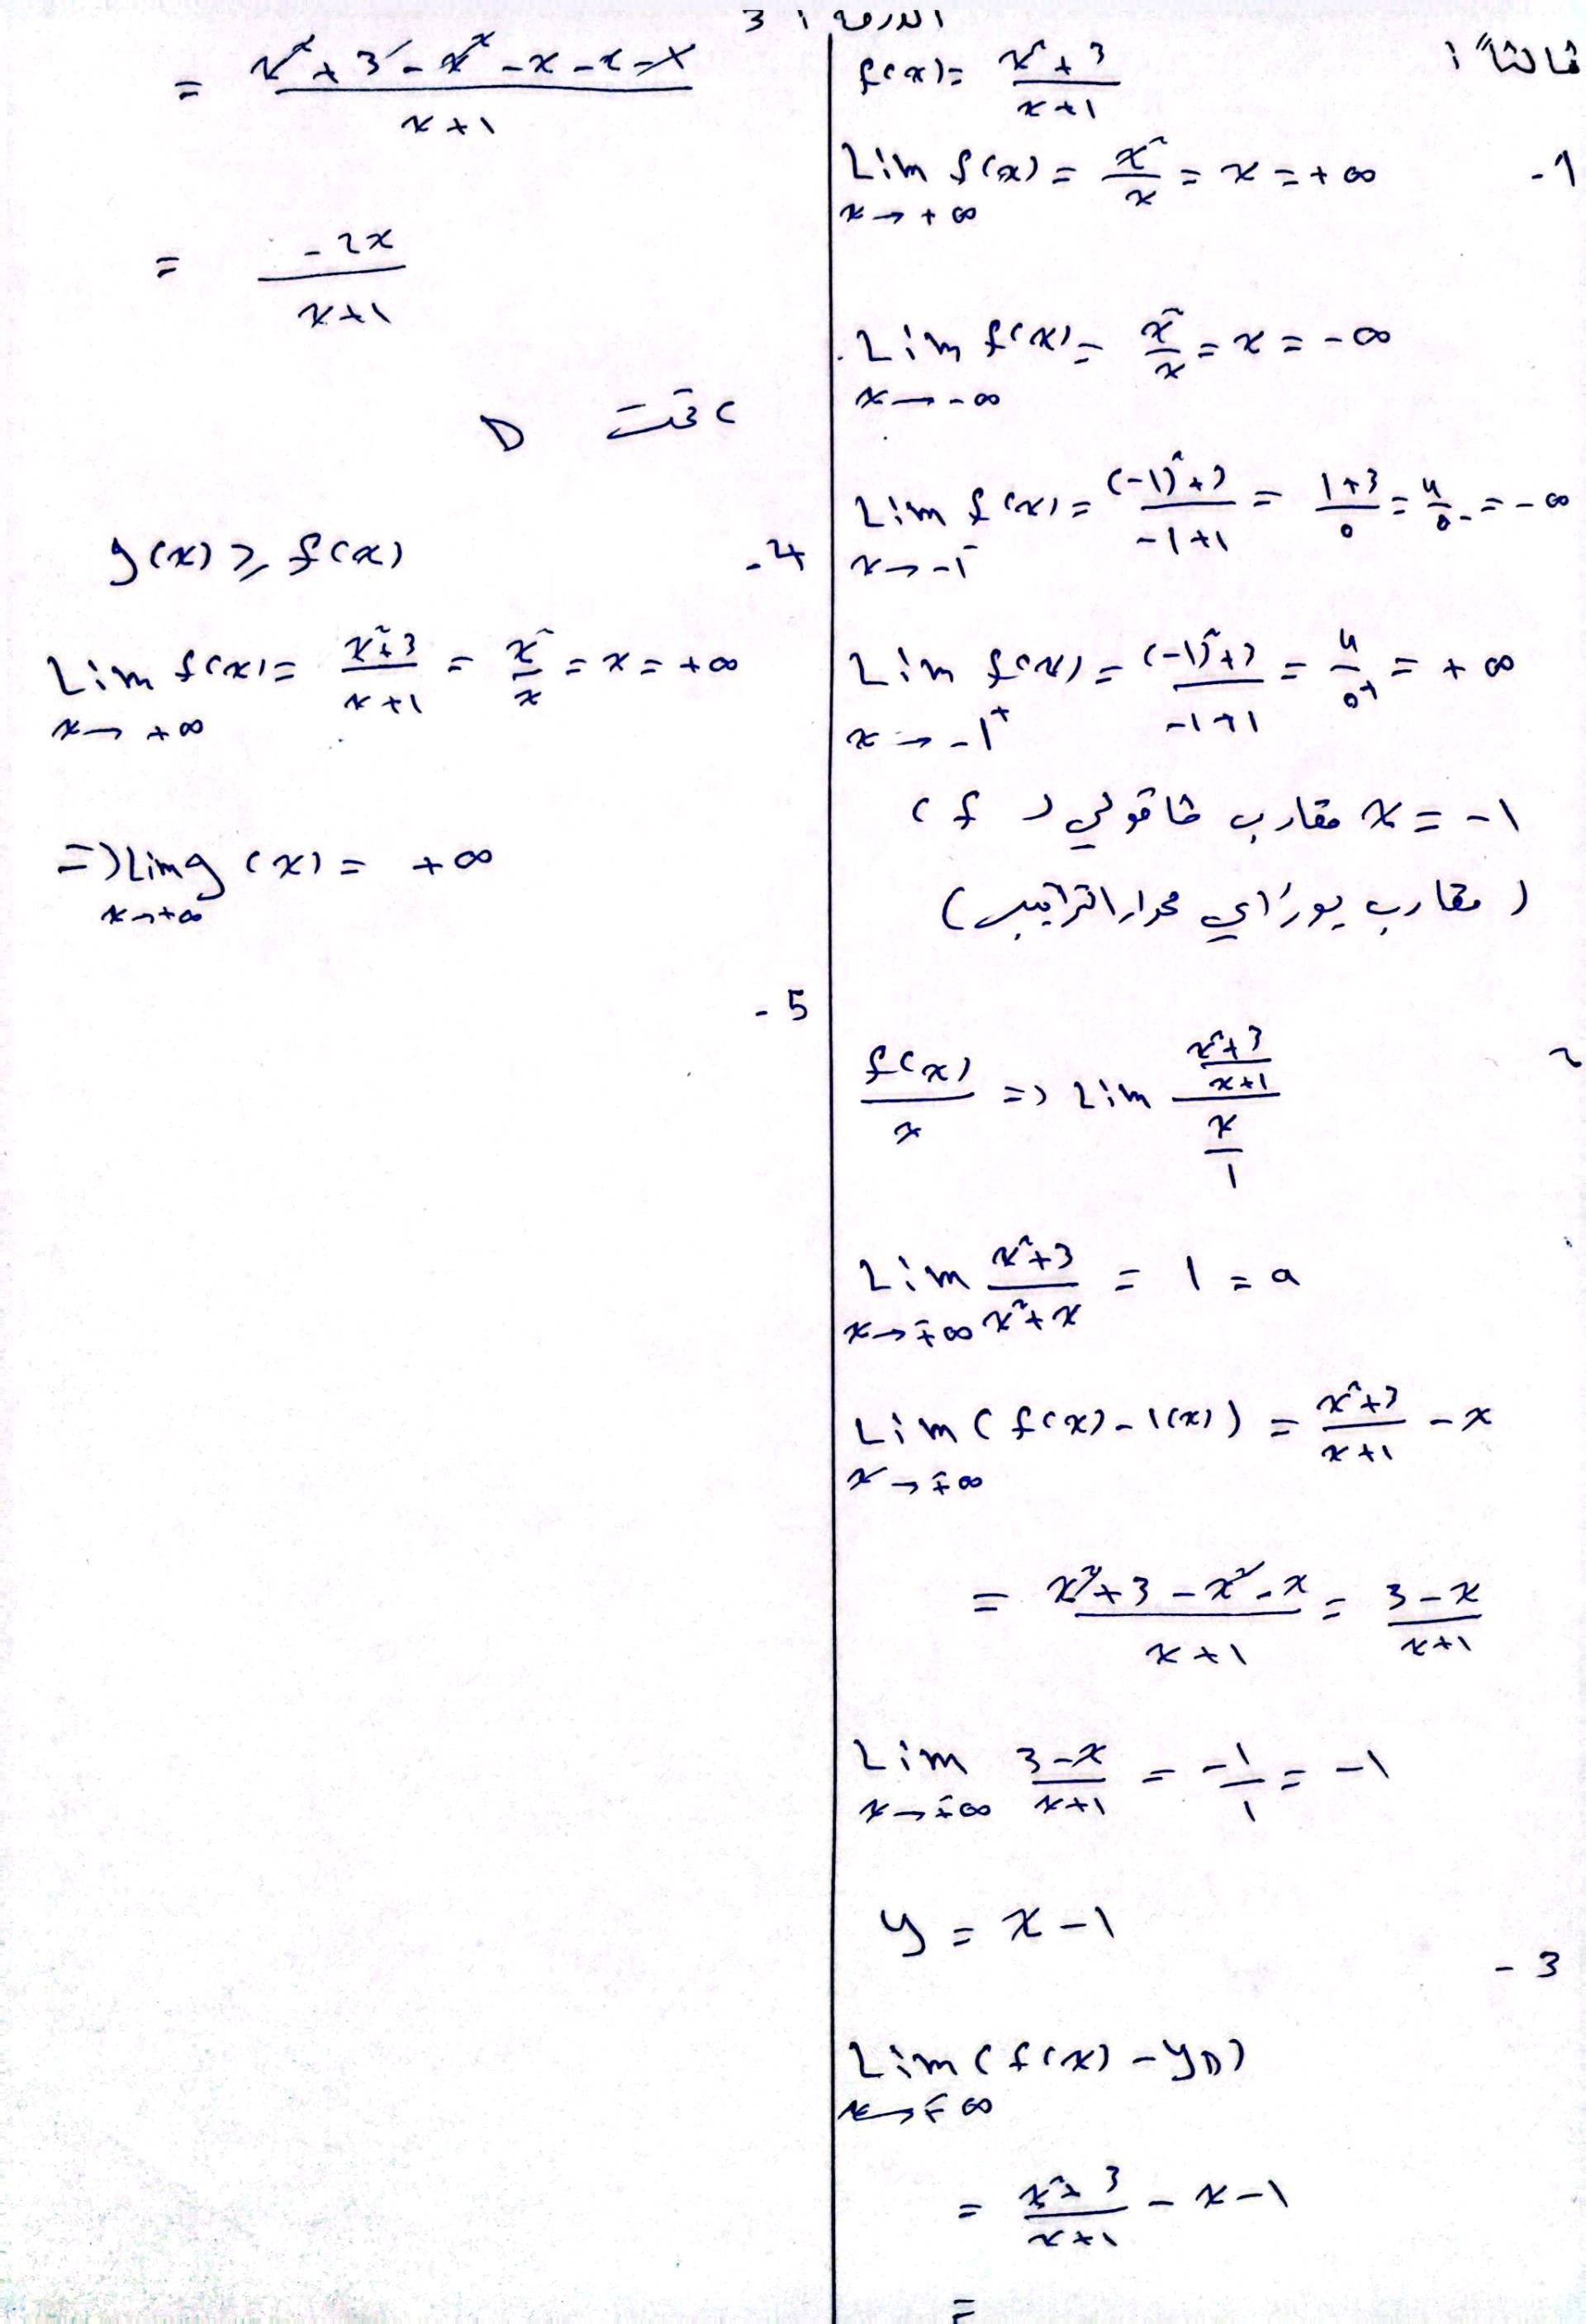 الورقة : 3
ثالثاً :
f(x) = x² + 3 / x + 1
1 - Lim f(x) = x² / x = x = + ∞
x → + ∞
Lim f(x) = x² / x = x = - ∞
x → - ∞
Lim f(x) = (-1)² + 3 / -1 + 1 = 1 + 3 / 0 = 4 / 0- = - ∞
x → -1⁻
Lim f(x) = (-1)² + 3 / -1 + 1 = 4 / 0+ = + ∞
x → -1⁺
x = -1 مقارب شاقولي لـ ( f )
( مقارب يوازي محور التراتيب )
2 f(x) / x => Lim x² + 3 / x + 1 / x / 1
Lim x² + 3 / x² + x = 1 = a
x → ∓∞
Lim ( f(x) - 1(x) ) = x² + 3 / x + 1 - x
x → ∓∞
= x² + 3 - x² - x / x + 1 = 3 - x / x + 1
Lim 3 - x / x + 1 = - 1 / 1 = -1
x → ∓∞
y = x - 1
- 3
Lim ( f(x) - yD )
x → ∓∞
= x² + 3 / x + 1 - x - 1
=
= x² + 3 - x² - x - x - x / x + 1
= - 2x / x + 1
تحت D
4 - g(x) ≥ f(x)
Lim f(x) = x² + 3 / x + 1 = x² / x = x = + ∞
x → + ∞
=> Lim g(x) = + ∞
x → + ∞
- 5